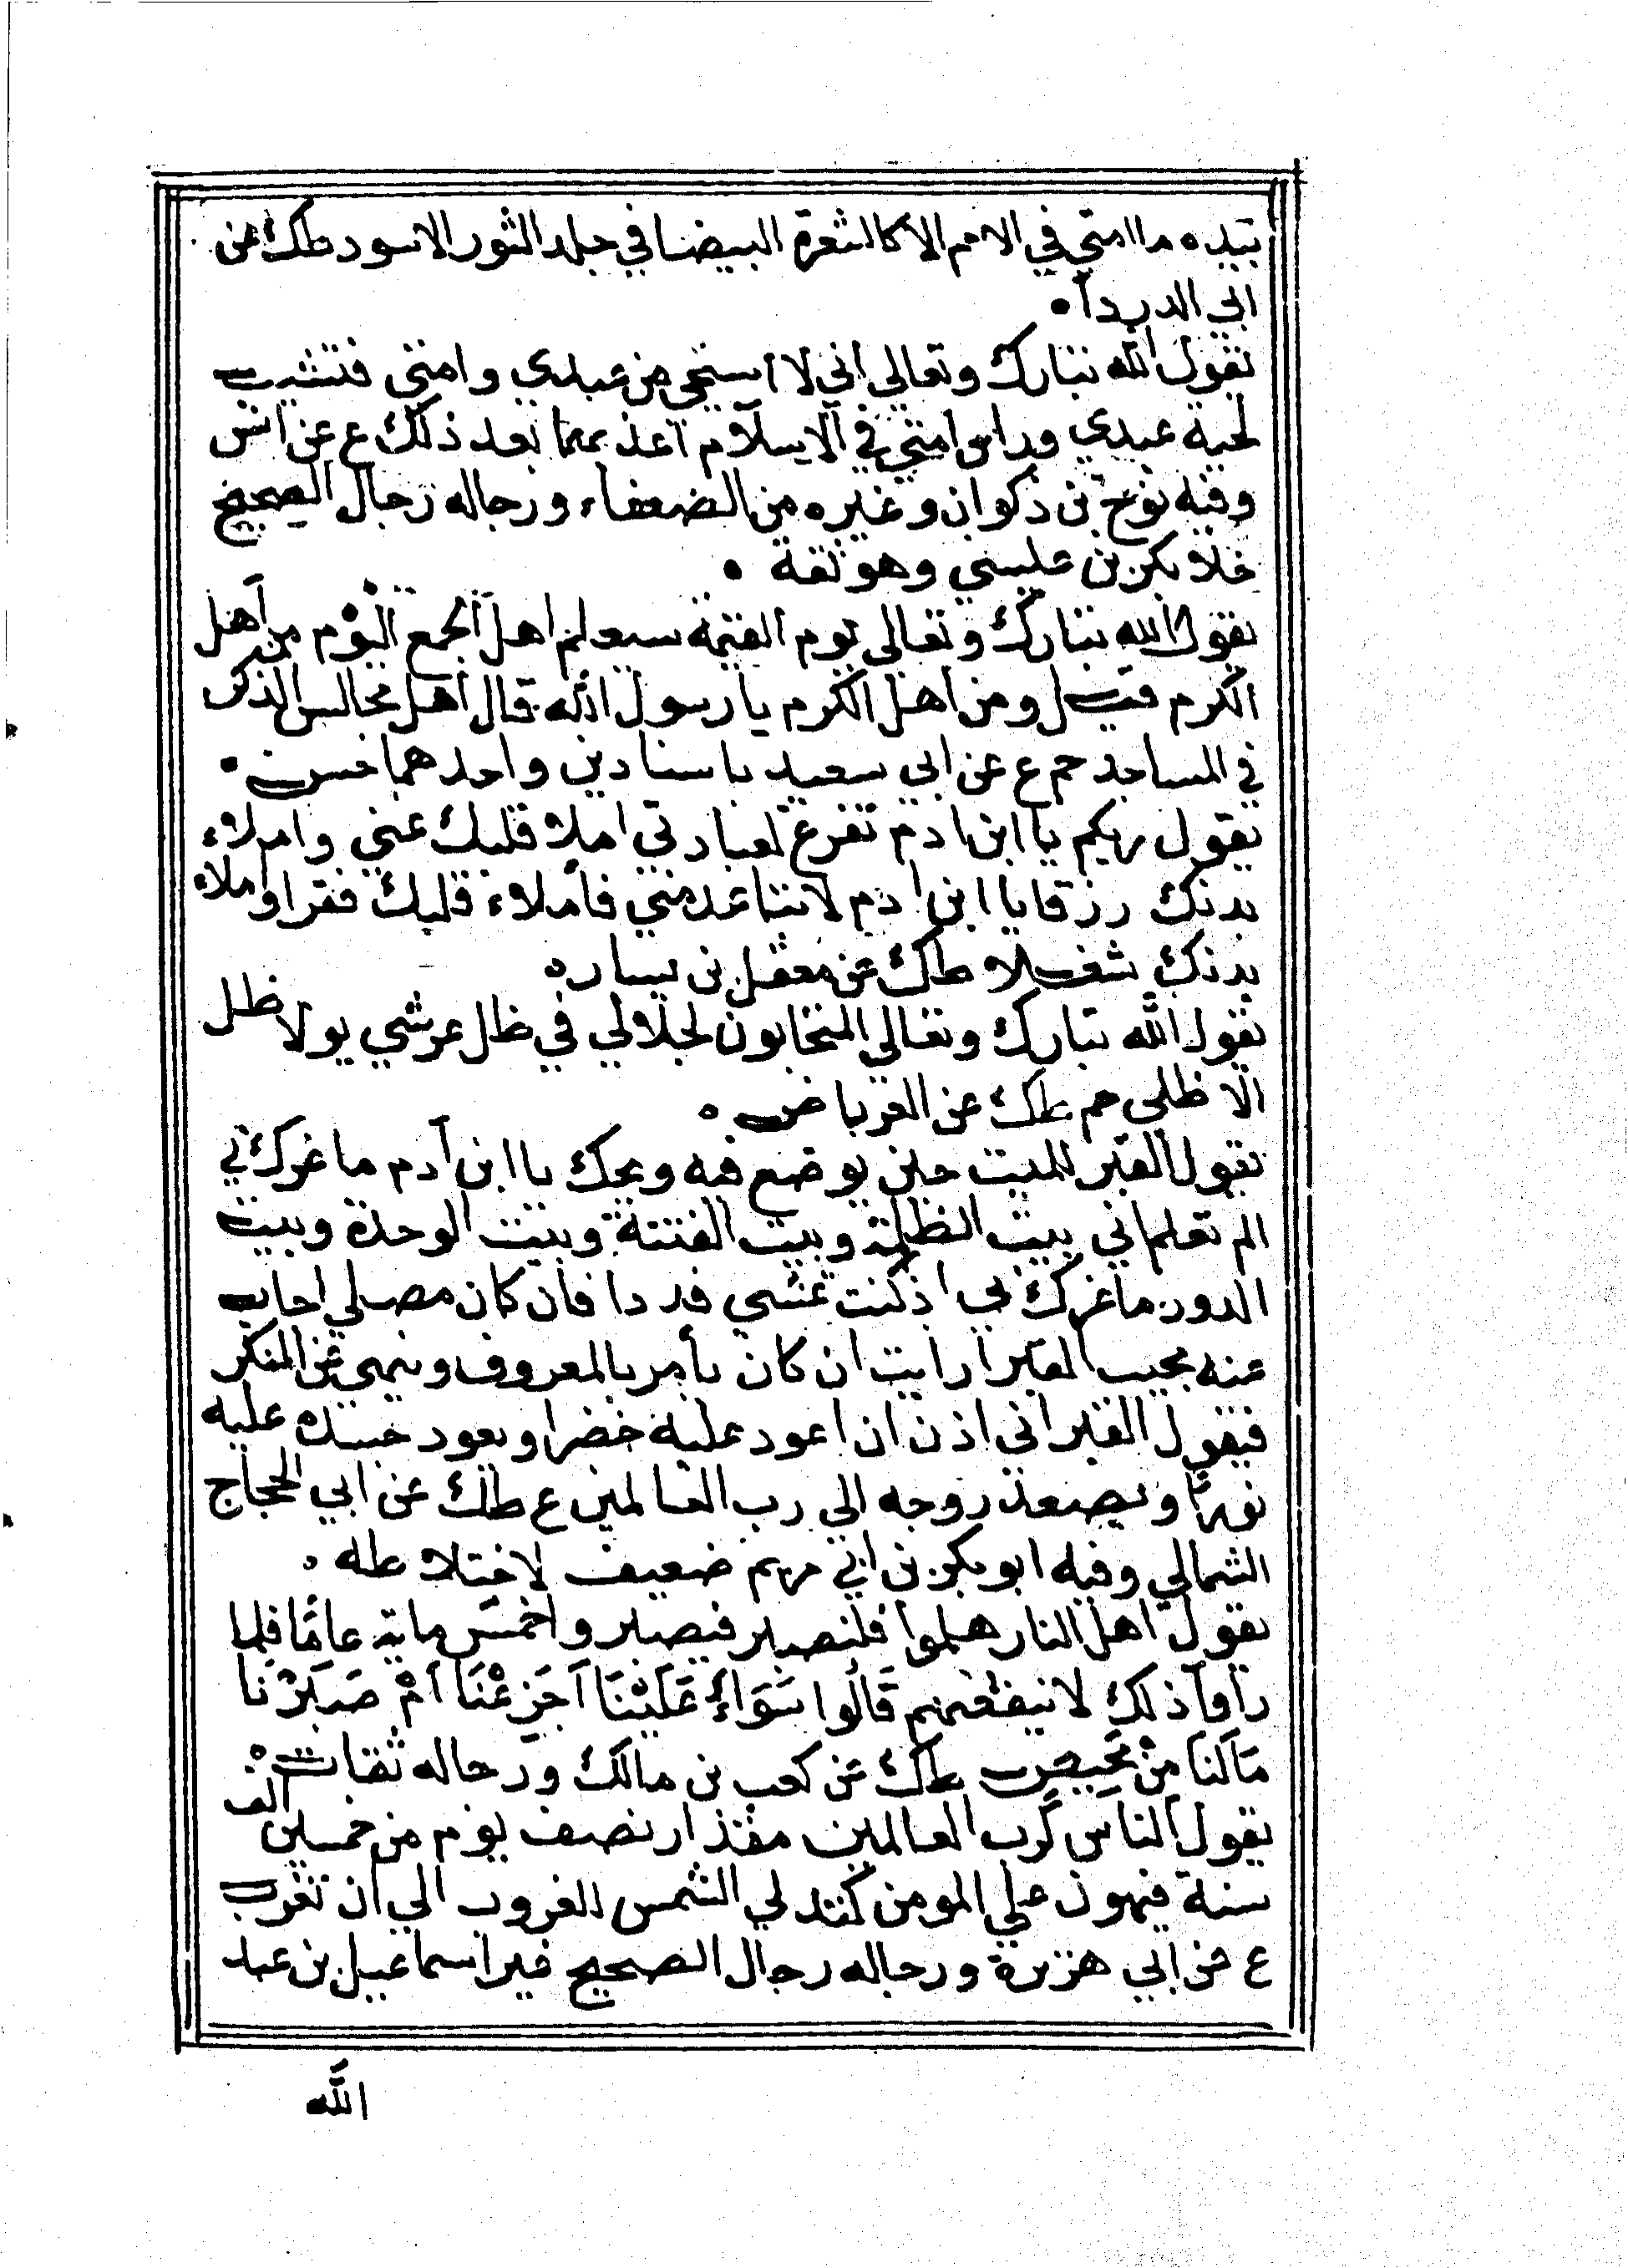 بيده ما امتي في الامم الا كالشعرة البيضا في جلد الثور الاسود طك عن
ابي الدردآ.
يقول الله تبارك وتعالى اني لا استحي من عبدي وامتي فتشيب
لحية عبدي وراس امتي في الاسلام اعذبهما بعد ذلك ع عن انس
وفيه نوح بن ذكوان وغيره من الضعفاء ورجاله رجال الصحيح
خلا بكر بن عيسي وهو ثقة .
يقول الله تبارك وتعالى يوم القيمة سيعلم اهل الجمع اليوم من اهل
الكرم قيل ومن اهل الكرم يا رسول الله قال اهل مجالس الذكر
في المساجد حم ع عن ابي سعيد باسنادين واحدهما حسن .
يقول ربكم يا ابن ادم تفرغ لعبادتي املا قلبك غني واملاء
بدنك رزقا يا ابن ادم لا تتباعد مني فأملاء قلبك فقرا واملاء
بدنك شغلا طك عن معقل بن يسار ه
يقول الله تبارك وتعالي المتحابون لجلالي في ظل عرشي يو لا ظل
الا ظلي حم طك عن العرباض .
يقول القبر للميت حين يوضع فيه ويحك يا ابن آدم ما غرك بي
الم تعلم اني بيت الظلمة وبيت الفتنة وبيت الوحدة وبيت
الدود ما غرك بي اذ كنت تمشي فددا فان كان مصلي اجاب
عنه مجيب القبر ارايت ان كان يأمر بالمعروف وينهي عن المنكر
فيقول القبر اني اذن ان اعود عليه خضرا ويعود جسده عليه
نورًا ويصعد روحه الي رب العالمين ع طك عن ابي الحجاج
الثمالي وفيه ابو بكر بن ابي مريم ضعيف لاختلاطه .
يقول اهل النار هلموا فلنصبر فيصبروا خمس ماية عامًا فلما
رأوا ذلك لا ينفعهم قَالُوا سَوَاءٌ عَلَيْنَا اَجَزِعْنَا اَمْ صَبَرْنَا
مَا لَنَا مِنْ مَحِيصٍ طك عن كعب بن مالك ورجاله ثقات .
يقول الناس لرب العالمين مقدار نصف يوم من خمسين الف
سنة فيهون علي المومن كتدلي الشمس للغروب الي ان تغرب
ع عن ابي هريرة ورجاله رجال الصحيح غير اسماعيل بن عبد
اللَّه